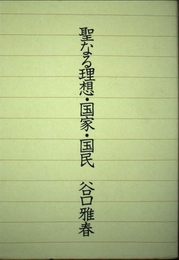 聖なる理想・国家・国民 谷口雅春